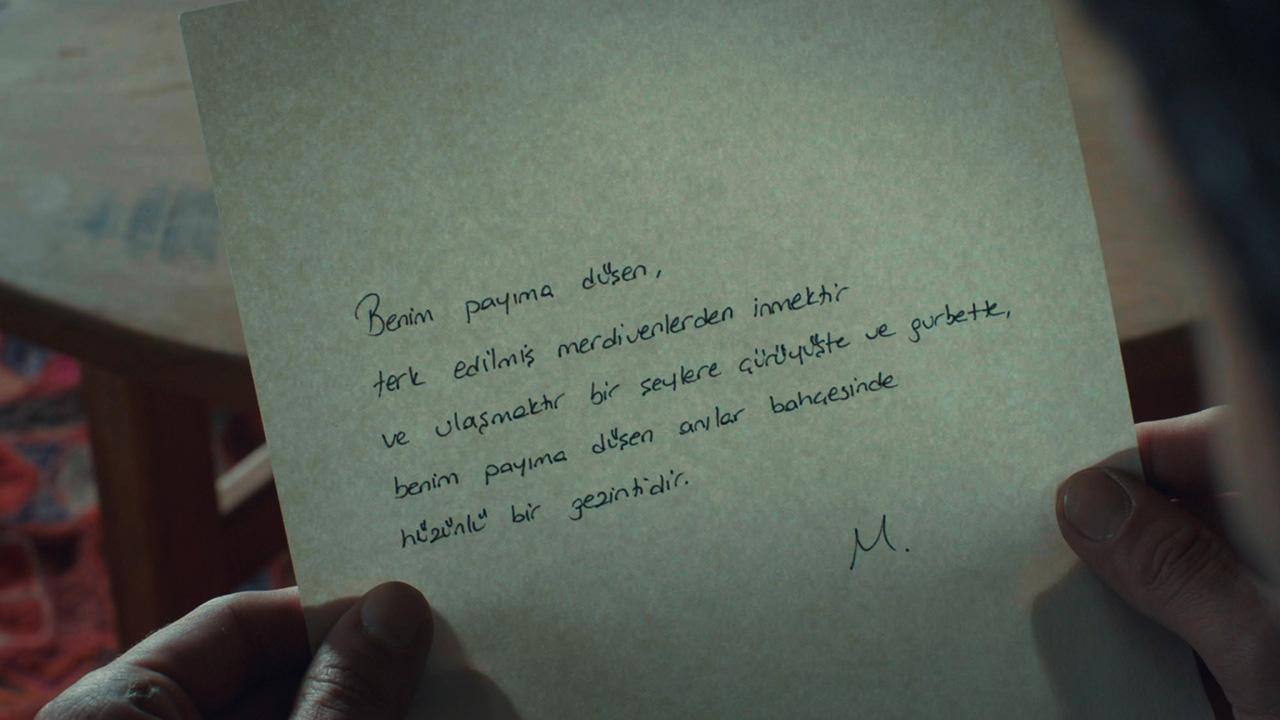 Benim payıma düşen,
terk edilmiş merdivenlerden inmektir
ve ulaşmaktır bir şeylere çürüyüşte ve gurbette,
benim payıma düşen anılar bahçesinde
hüzünlü bir gezintidir.
M.